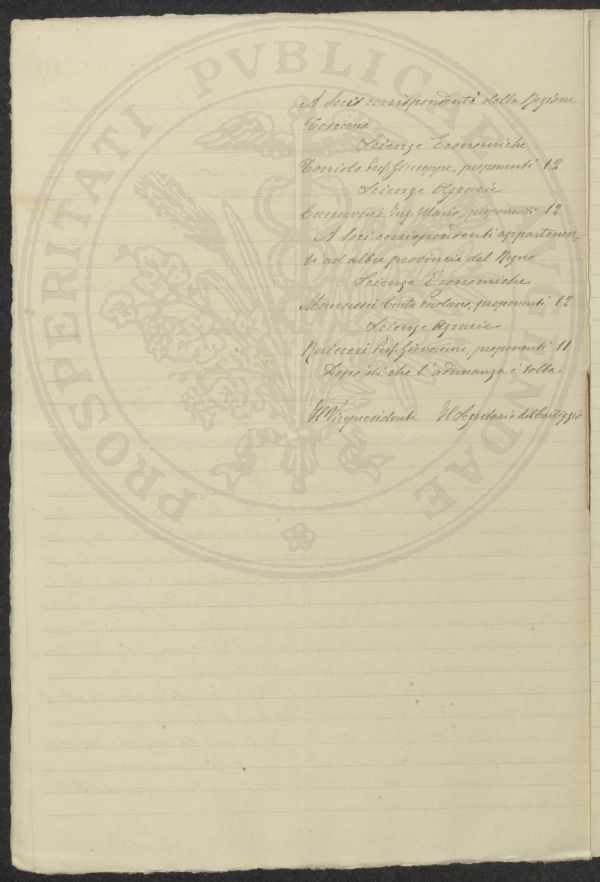 A Soci corrispondenti della Regione
Toscana
Scienze Economiche
Toniolo Prof. Giuseppe, proponenti 12
Scienze Agrarie
Ing. Mario, proponenti 12
A Soci corrispondenti appartenen-
ti ad altre provincie del Regno
Scienze Economiche
Manassei Conte Paolano, proponenti 12
Scienze Agrarie
Raineri Prof. Giovanni, proponenti 11
Dopo di che l'adunanza è tolta.
Il Vicepresidente Il Segretario del Carteggio
PROSPERITATI PVBLICAE AVGENDAE